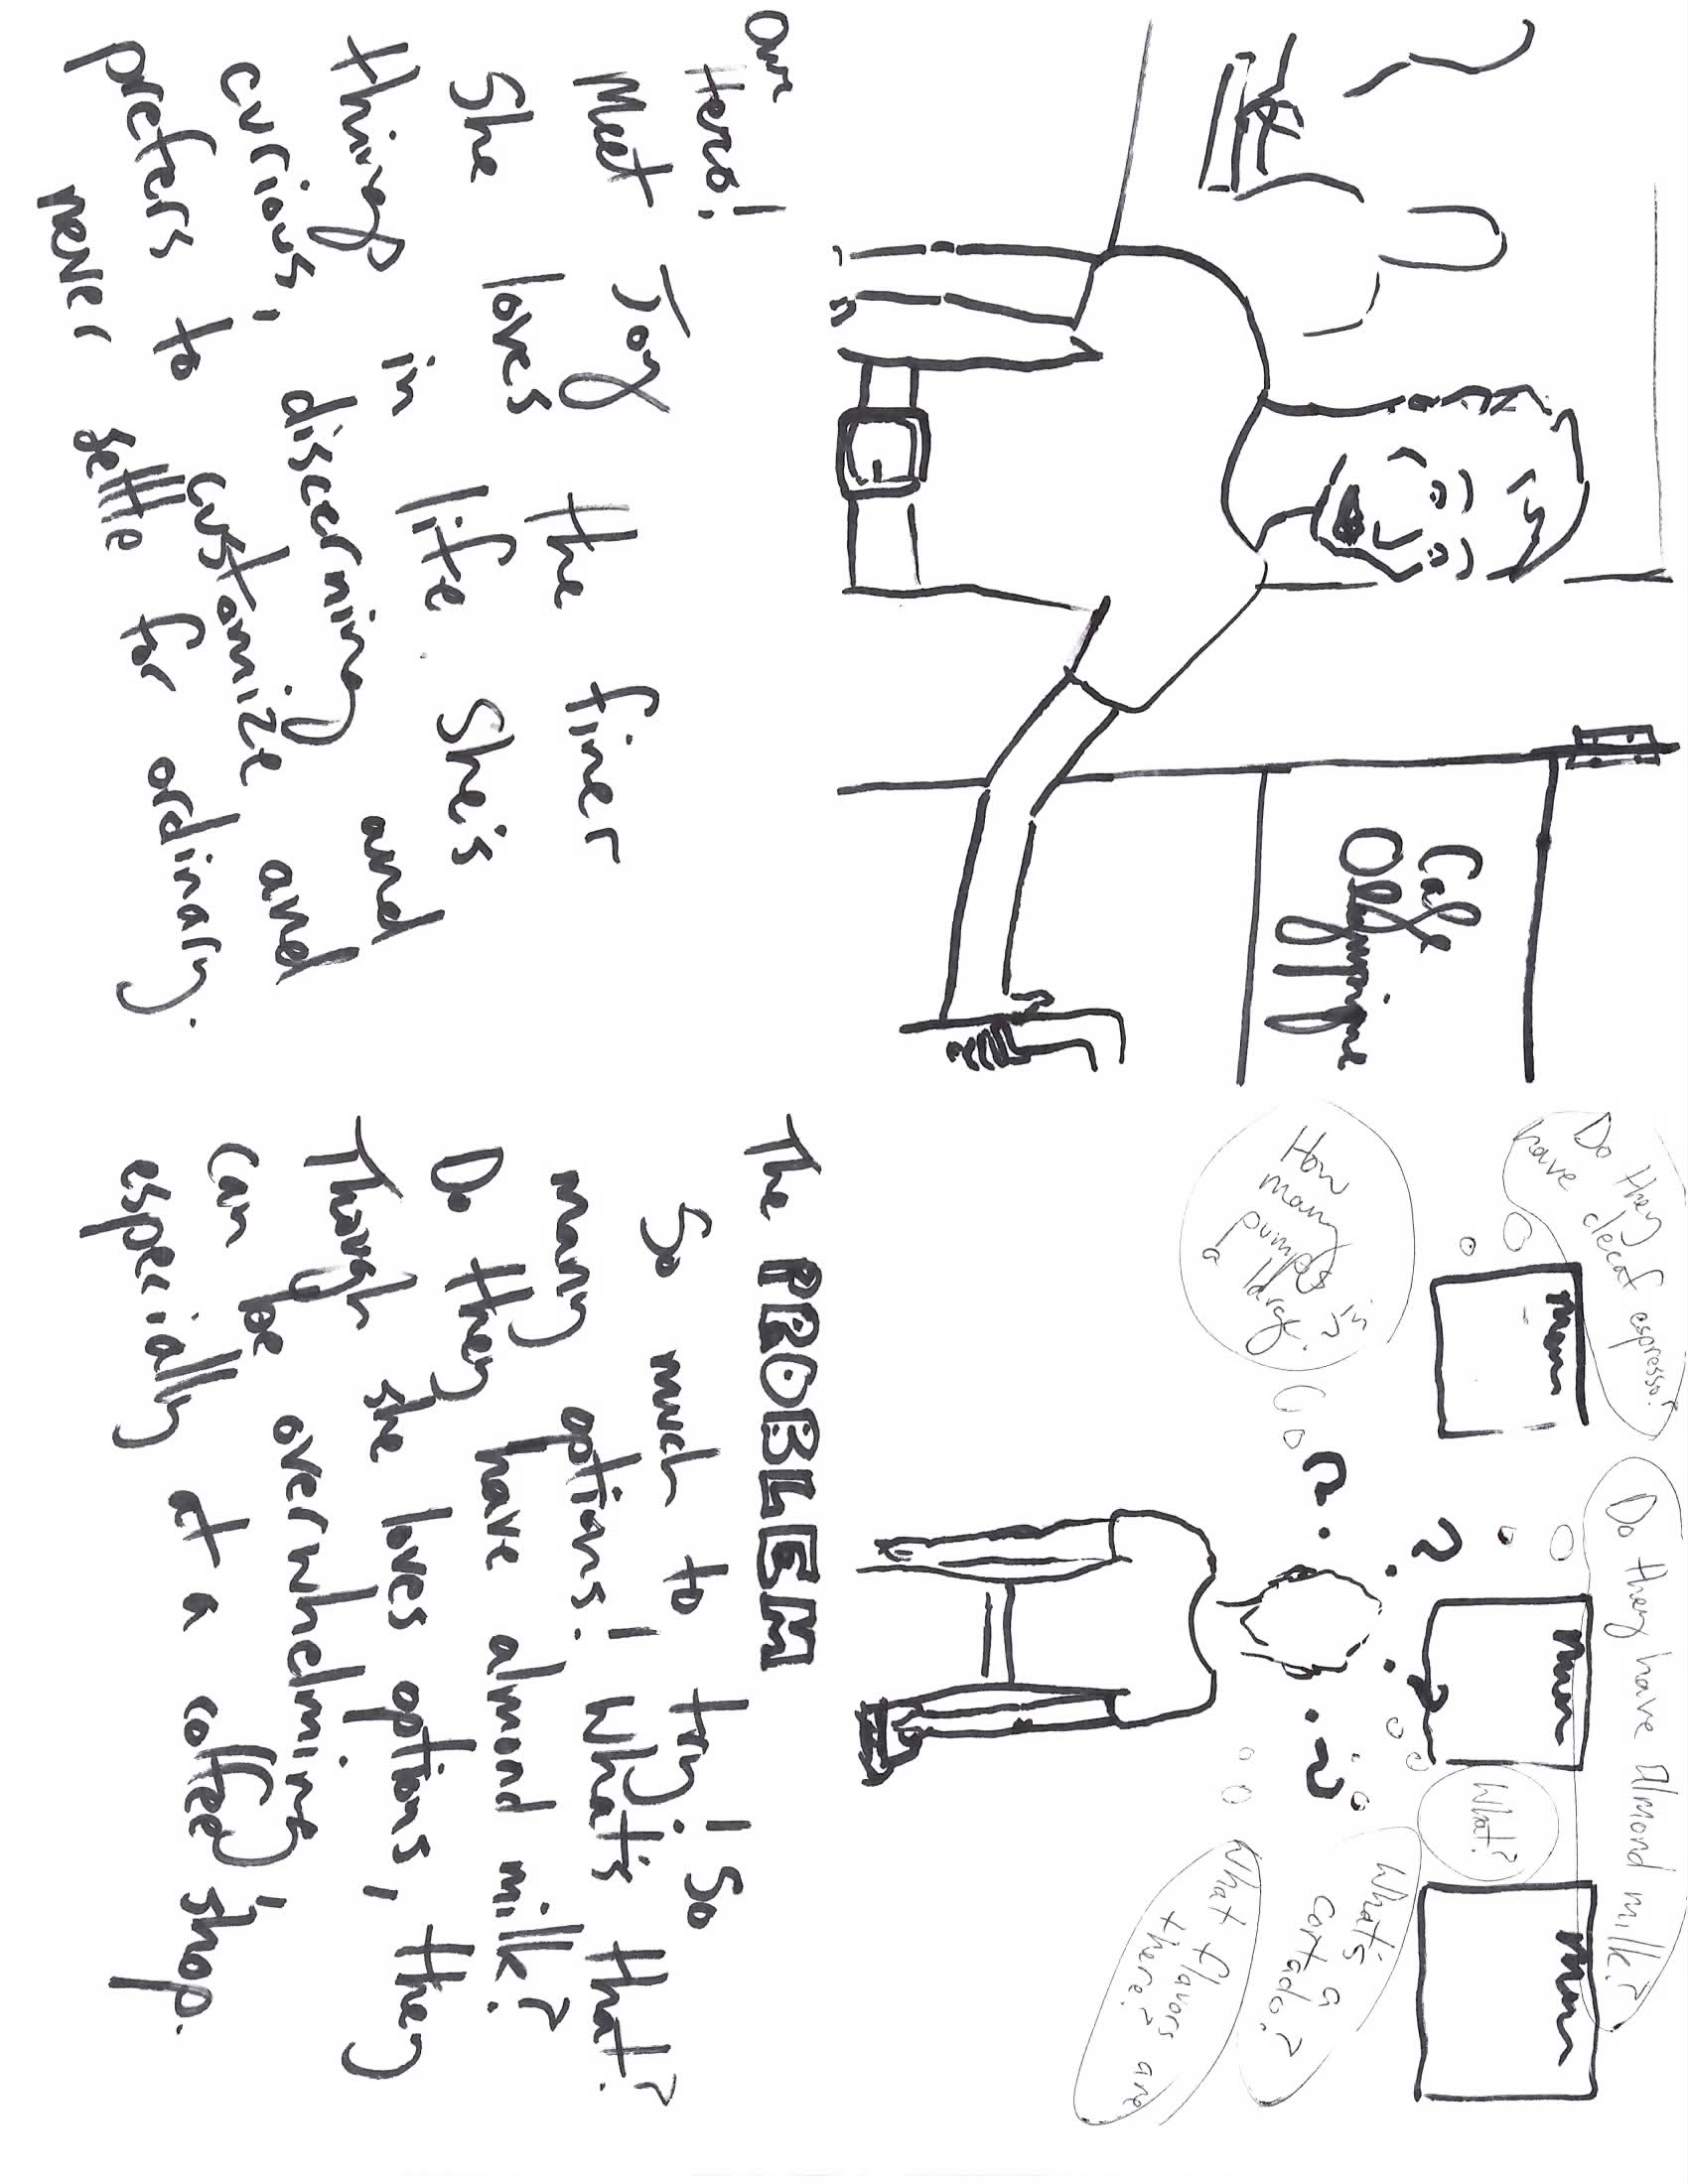 Cafe
Olympine
Our Hero!
Meet Joy the finer
She loves
things in life. She's
curious, discerning and
prefers to customize and
never settle for ordinary.
Do they
have decaf espresso?
Do they have almond milk?
How
many
pumps in
a large?
What?
What's a
cortado?
What flavors are
there?
The PROBLEM
So much to try! So
many options! What's that?
Do they have almond milk?
Though she loves options, they
can be overwhelming,
especially at a coffee shop.